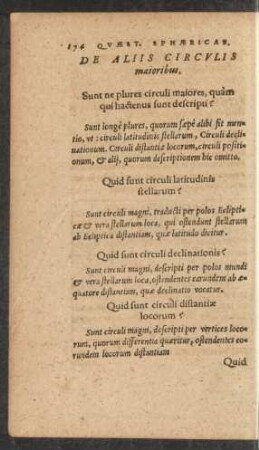 174 QVÆST. SPHÆRICAE.
DE ALIIS CIRCVLIS
maioribus.
Sunt ne plures circuli maiores, quàm
qui hactenus sunt descripti?
Sunt longè plures, quorum sæpè alibi fit men-
tio, vt: circuli latitudinis stellarum, Circuli decli-
nationum. Circuli distantiæ locorum, circuli positi-
onum, & alij, quorum descriptionem hic omitto.
Quid sunt circuli latitudinis
stellarum?
Sunt circuli magni, traducti per polos Eclipti-
cæ & vera stellarum loca, qui ostendunt stellarum
ab Ecliptica distantiam, quæ latitudo dicitur.
Quid sunt circuli declinationis?
Sunt circuli magni, descripti per polos mundi
& vera stellarum loca, ostendentes earundem ab æ-
quatore distantiam, quæ declinatio vocatur.
Quid sunt circuli distantiæ
locorum?
Sunt circuli magni, descripti per vertices loco-
rum, quorum differentia quæritur, ostendentes eo-
rundem locorum distantiam
Quid